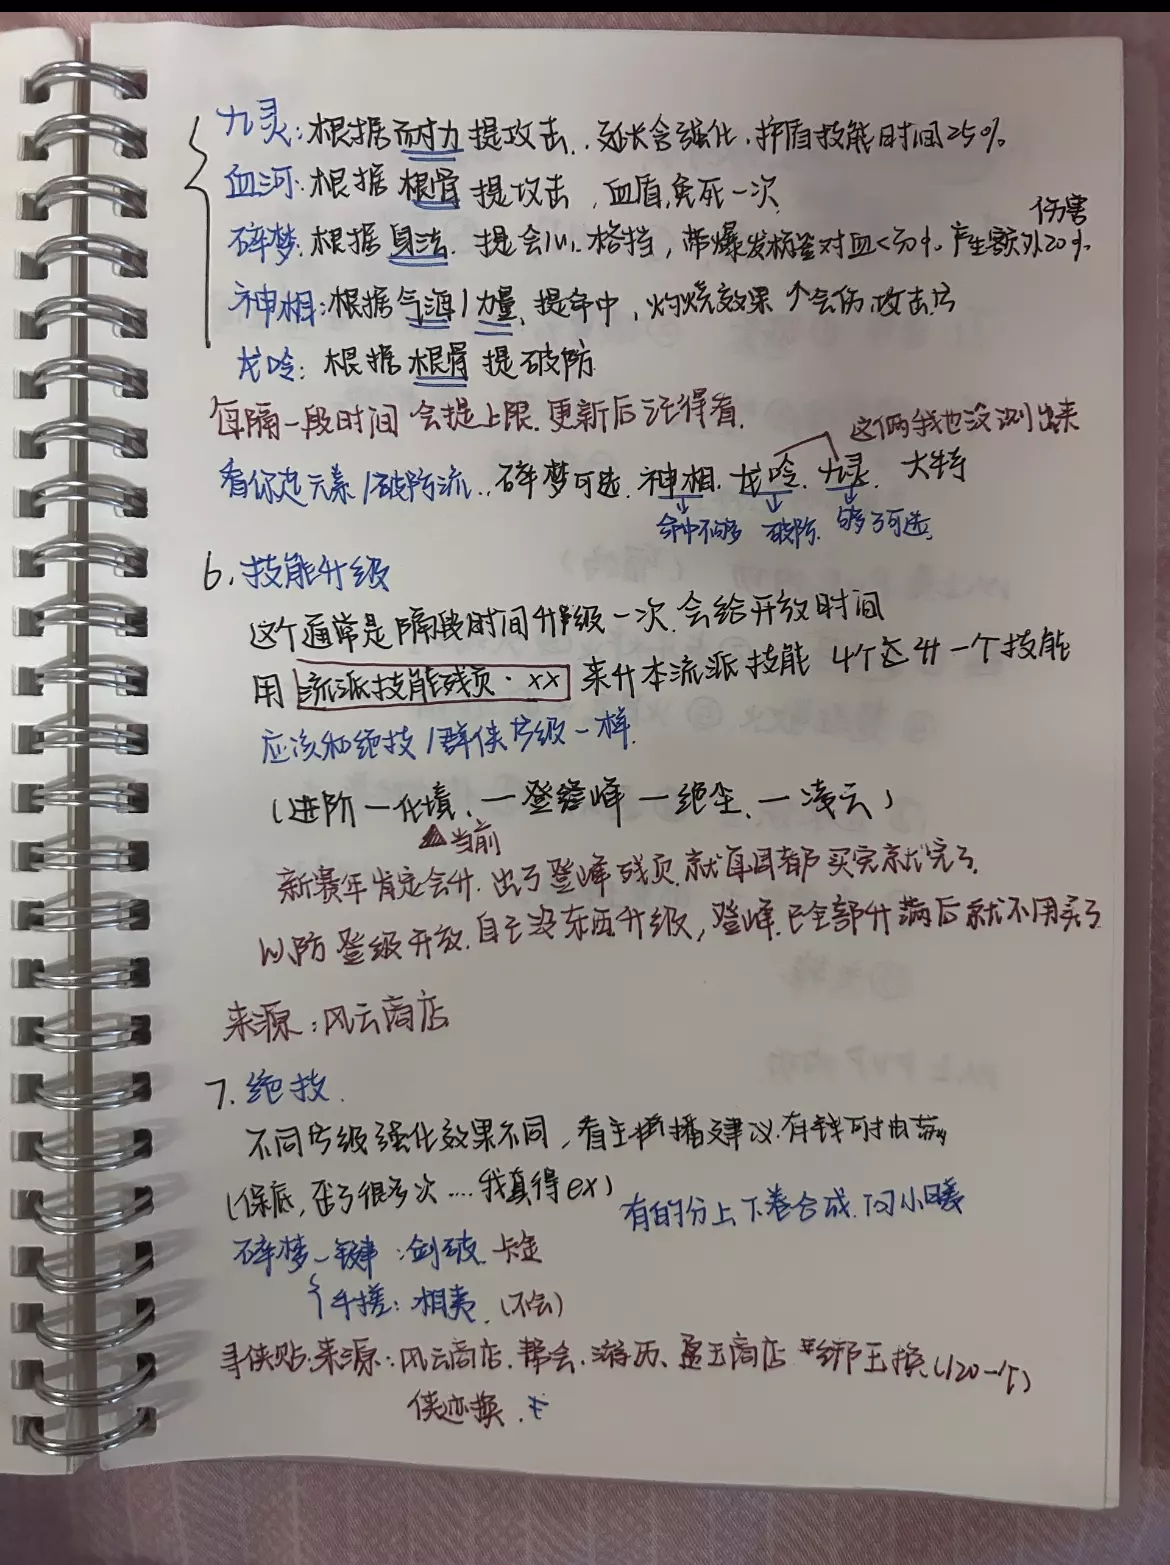 九灵:根据耐力提攻击..延长会强化.护盾技能时间25%.
血河:根据根骨提攻击,血盾,免死一次
伤害
碎梦:根据身法.提会心.格挡,带爆发 对血<30%产生额外20%
神相:根据气海/力量,提命中,灼烧效果个会伤,攻击
龙吟:根据根骨提破防
每隔一段时间会提上限.更新后记得看.
这俩我也没测出来
看你走元素/破防流..碎梦可选.神相.龙吟.九灵.大特
命中不够 破防 够了可选
6.技能升级
这个通常是隔段时间升级一次.会给开放时间
用流派技能残页·xx来升本流派技能 4个 升一个技能
应该和绝技/群侠 级一样.
(进阶—化境.—登峰—绝尘.—凌云)
▲当前
新赛年肯定会升.出了登峰残页.就每周都买完就完了.
以防登级开放.自己没东西升级,登峰已全部升满后就不用买了
来源:风云商店
7.绝技.
不同 级强化效果不同,看主播建议.有钱可抽
(保底,歪了很多次....我真得ex) 有的分上下卷合成.问小暖
碎梦 一键:剑破.卡金
手搓:相夷.(不会)
寻侠贴.来源:风云商店.帮会.游历、盈玉商店 绑玉换(120一个)
侠迹换.